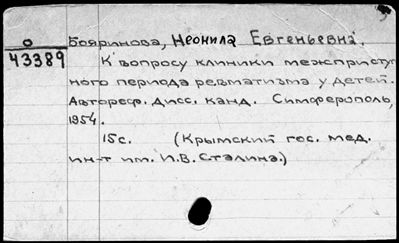 О
43389
Бояринова, Неонила Евгеньевна.
К вопросу клиники межприступ
ного периода ревматизма у детей.
Автореф. дисс. канд. Симферополь,
1954.
15с. (Крымский гос. мед.
ин-т им. И.В. Сталина.)